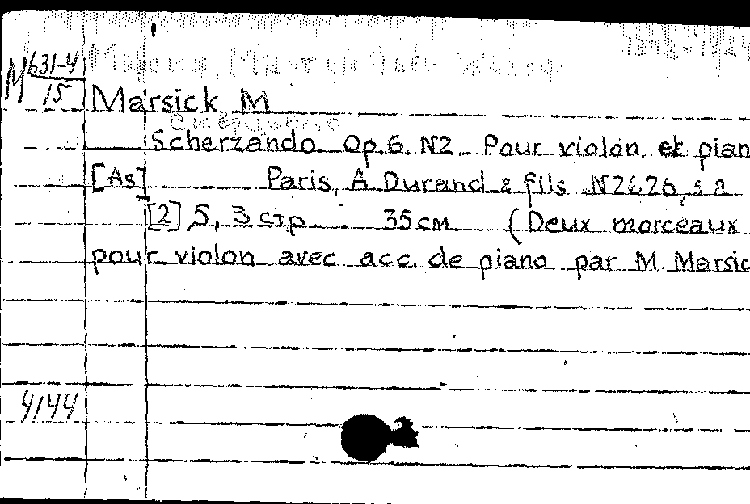 M 631-4
15
Marsick M
Scherzando Op.6. N2 Pour violon et pian
[As] Paris, A Durand & fils
[2] 5, 3 стр 35см (Deux morceaux
pour violon avec acc. de piano par M Marsic
4144